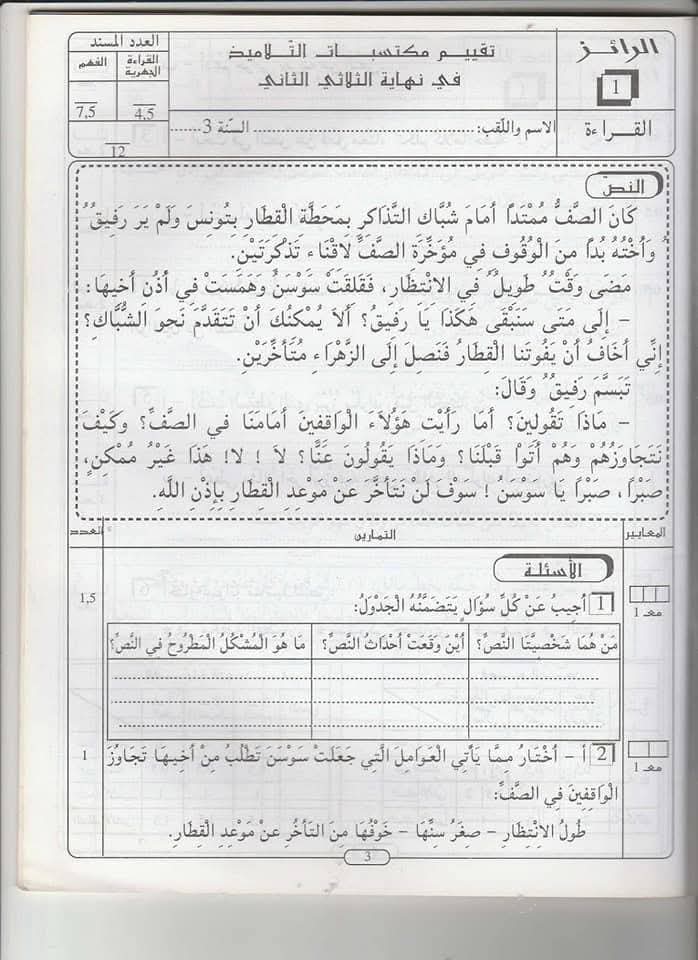 الرائز
1
القراءة
تقييم مكتسبات التلاميذ
في نهاية الثلاثي الثاني
الاسم واللقب: ........................ السنة 3......
العدد المسند
القراءة الجهرية
الفهم
4,5
7,5
12
النص
كَانَ الصَّفُّ مُمْتَدًا أَمَامَ شُبَّاكِ التَّذَاكِرِ بِمَحَطَّةِ الْقِطَارِ بِتُونِسَ وَلَمْ يَرَ رَفِيقٌ
وَأُخْتُهُ بُدًا مِنَ الْوُقُوفِ فِي مُؤَخَّرَةِ الصَّفِّ لِاقْتِنَاءِ تَذْكِرَتَيْنِ.
مَضَى وَقْتٌ طَوِيلٌ فِي الِانْتِظَارِ، فَقَلِقَتْ سَوْسَنُ وَهَمَسَتْ فِي أُذُنِ أَخِيهَا:
– إِلَى مَتَى سَنَبْقَى هَكَذَا يَا رَفِيقُ؟ أَلَا يُمْكِنُكَ أَنْ تَتَقَدَّمَ نَحْوَ الشُّبَّاكِ؟
إِنِّي أَخَافُ أَنْ يَفُوتَنَا الْقِطَارُ فَنَصِلَ إِلَى الزَّهْرَاءِ مُتَأَخِّرَيْنِ.
تَبَسَّمَ رَفِيقٌ وَقَالَ:
– مَاذَا تَقُولِينَ؟ أَمَا رَأَيْتِ هَؤُلَاءِ الْوَاقِفِينَ أَمَامَنَا فِي الصَّفِّ؟ وَكَيْفَ
نَتَجَاوَزُهُمْ وَهُمْ أَتَوْا قَبْلَنَا؟ وَمَاذَا يَقُولُونَ عَنَّا؟ لَا ! لَا! هَذَا غَيْرُ مُمْكِنٍ،
صَبْرًا، صَبْرًا يَا سَوْسَنُ ! سَوْفَ لَنْ نَتَأَخَّرَ عَنْ مَوْعِدِ الْقِطَارِ بِإِذْنِ اللَّهِ.
المعايير
التمارين
العدد
الأسئلة
1 أُجِيبُ عَنْ كُلِّ سُؤَالٍ يَتَضَمَّنُهُ الْجَدْوَلُ:
معـ 1
1,5
مَنْ هُمَا شَخْصِيَّتَا النَّصِّ؟
أَيْنَ وَقَعَتْ أَحْدَاثُ النَّصِّ؟
مَا هُوَ الْمُشْكِلُ الْمَطْرُوحُ فِي النَّصِّ؟
2 أ – أَخْتَارُ مِمَّا يَأْتِي الْعَوَامِلَ الَّتِي جَعَلَتْ سَوْسَنَ تَطْلُبُ مِنْ أَخِيهَا تَجَاوُزَ
الْوَاقِفِينَ فِي الصَّفِّ:
معـ 1
1
طُولُ الِانْتِظَارِ – صِغَرُ سِنِّهَا – خَوْفُهَا مِنَ التَّأَخُّرِ عَنْ مَوْعِدِ الْقِطَارِ.
3